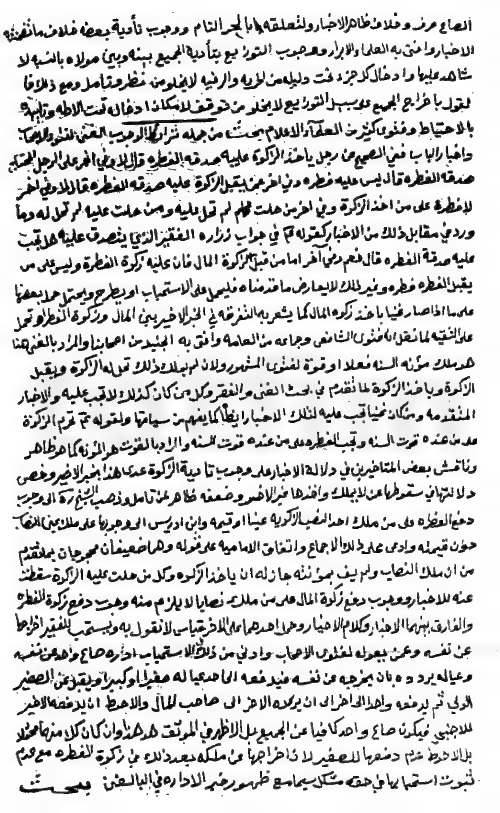 الصاع عرف و خلاف ظاهر الاخبار ولتعلقه بالحر التام و وجوب تأدية بعضه خلاف ما تقتضيه
الاخبار وافتى به العلماء والابرار و وجوب التوزيع بتأدية الجميع بينه وبين مولاه بالنسبة لا
شاهد عليها وادخال كل جزء تحت دليله من لزومه والرقية لا يخلو من نظر وتأمل ومع ذلك فا
لقول باخراج الجميع على سبيل التوزيع لا يخلو من توقف لامكان ادخاله تحت الاطلاق
بالاحتياط وفتوى كثير من العلماء الاعلام بحث من جملة شرائط الوجوب الغنى للفتوى والاجماع
واخبار الباب ففي الصحيح عن رجل يأخذ الزكوة عليه صدقه الفطره قال لا وفي اخر على الرجل المحتاج
صدقه الفطره قال ليس عليه فطره وفي اخر عمن يقبل الزكوة عليه صدقه الفطره قال لا وفي اخر
لا فطرة على من اخذ الزكوة وفي اخر من حلت له لم تحل عليه ومن حلت عليه لم تحل له وما
ورد في مقابل ذلك من الاخبار كقوله ع في جواب زراره الفقير الذي يتصدق عليه هل تجب
عليه صدقة الفطره قال نعم وفي آخر اما من قبل زكوة المال فان عليه زكوة الفطرة وليس على من
يقبل الفطره فطره وغير ذلك لا يعارض ما قدمناه فليحمل على الاستحباب او يطرح ويحتمل حمل بعضها
على ما اذا صار غنيا باخذ زكوه المال كما يشعر به التفرقه في الخبر الاخير بين المال وزكوة الفطر او تحمل
على التقيه لما نقل انه فتوى الشافعي وجماعه من العامه وافق به الجنيد من اصحابنا والمراد بالغنى هنا
هو ملك مؤنه السنه فعلا او قوة لفتوى المشهور ولان لم يملك ذلك تحل له الزكوة ويقبل
الزكوة ويأخذ الزكوة لما تقدم في بحث الغنى والفقر وكل من كان كذلك لا تجب عليه والاخبار
المتقدمه ومن كان غنيا تجب عليه لتلك الاخبار ايضا كما يفهم من سياقها ولقوله ع تحرم الزكوة
على من عنده قوت السنه وتجب الفطره على من عنده قوت السنه والمراد بالقوت هو المؤنه كما هو ظاهر
وناقش بعض المتاخرين في دلالة الاخبار على وجوب تأدية الزكوة عدى هذا الخبر الاخير وخص
دلالتها في سقوطها عن لا يملك واخذها خبر الاخير وضعفه ظاهر لمن تامل وذهب الشيخ ره الى وجوب
دفع الفطره على من ملك احد النصب الزكويه عينا او قيمه وابن ادريس الى وجوبها على ملك عين النصاب
دون قيمته وادعى على ذلك الاجماع واتفاق الاماميه على قوله وهما ضعيفان محجوجان بما تقدم
من ان ملك النصاب ولم يف بمؤنته جاز له ان ياخذ الزكوه وكل من حلت عليه الزكوة سقطت
عنه للاخبار و وجوب دفع زكوة المال على من ملك نصابا لا يلزم منه وجوب دفع زكوة الفطره
والفارق بينهما الاخبار وكلام الاخيار وحمل احدهما على الاخر قياس لا نقول به ويستحب للفقير اخراجها
عن نفسه وعمن يعوله لفتوى الاصحاب وادنى من ذلك في الاستحباب اداره صاع واحد عن نفسه
وعياله يردده بان يخرجه عن نفسه فيدفعه الى احد عياله صغيرا او كبيرا ويقبل عن الصغير
الولي ثم يدفعه واحد الى اخر الى ان يردده الاخر الى صاحب المال والاحوط ان يدفعه الاخير
للاجنبي فيكون صاع واحد كافيا عن الجميع بل الاظهر في الموثق هو هذا وان كان كلا منهما محتملا
بل الاحوط عدم دفعها للصغير لان اخراجها عن ملكه بعد ذلك في زكوة الفطره مع عدم
ثبوت استحبابها في حقه مشكل سيما مع ظهور خبر الاداره في البالغين بحث